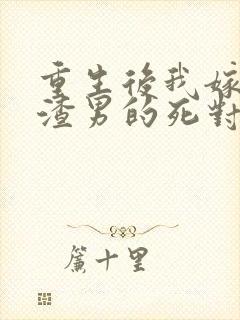 重生後我嫁
渣男的死對
簾十里